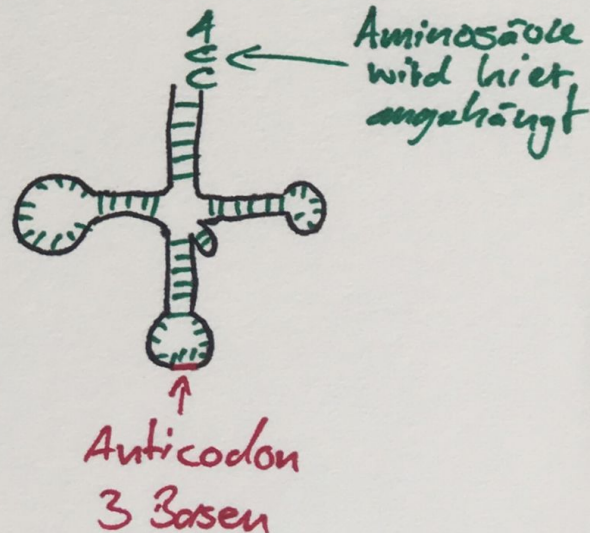 A
C
C
Aminosäure
wird hier
angehängt
Anticodon
3 Basen